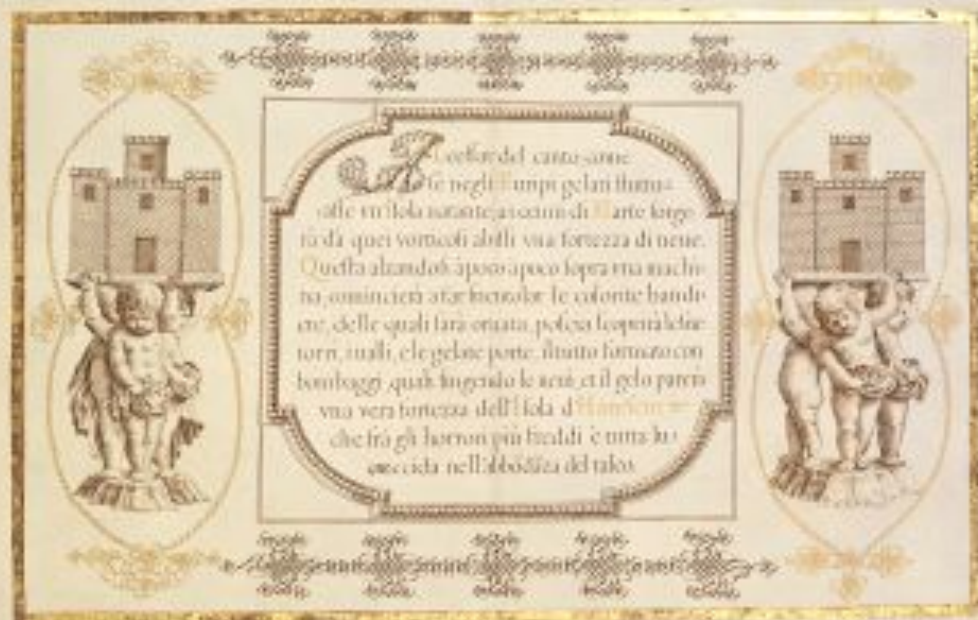 Al cessar del canto come
se negli
nasse un Isola natante, a i cenni di Marte sorge
rà da quei vorticosi abissi una fortezza di neue.
Questa alzandosi à poco à poco sopra una machi-
na, comincierà a far suentolar le colorite bandi-
ere, delle quali sarà ornata, poscia scoprirà le sue
torri, i ualli, e le gelate porte, il tutto formato con
bombaggi, quali fingendo le neui, et il gelo parerà
una vera fortezza dell'Isola d'
che frà gli horrori più freddi è tutta lu-
cida nell'abbodāza del talco.